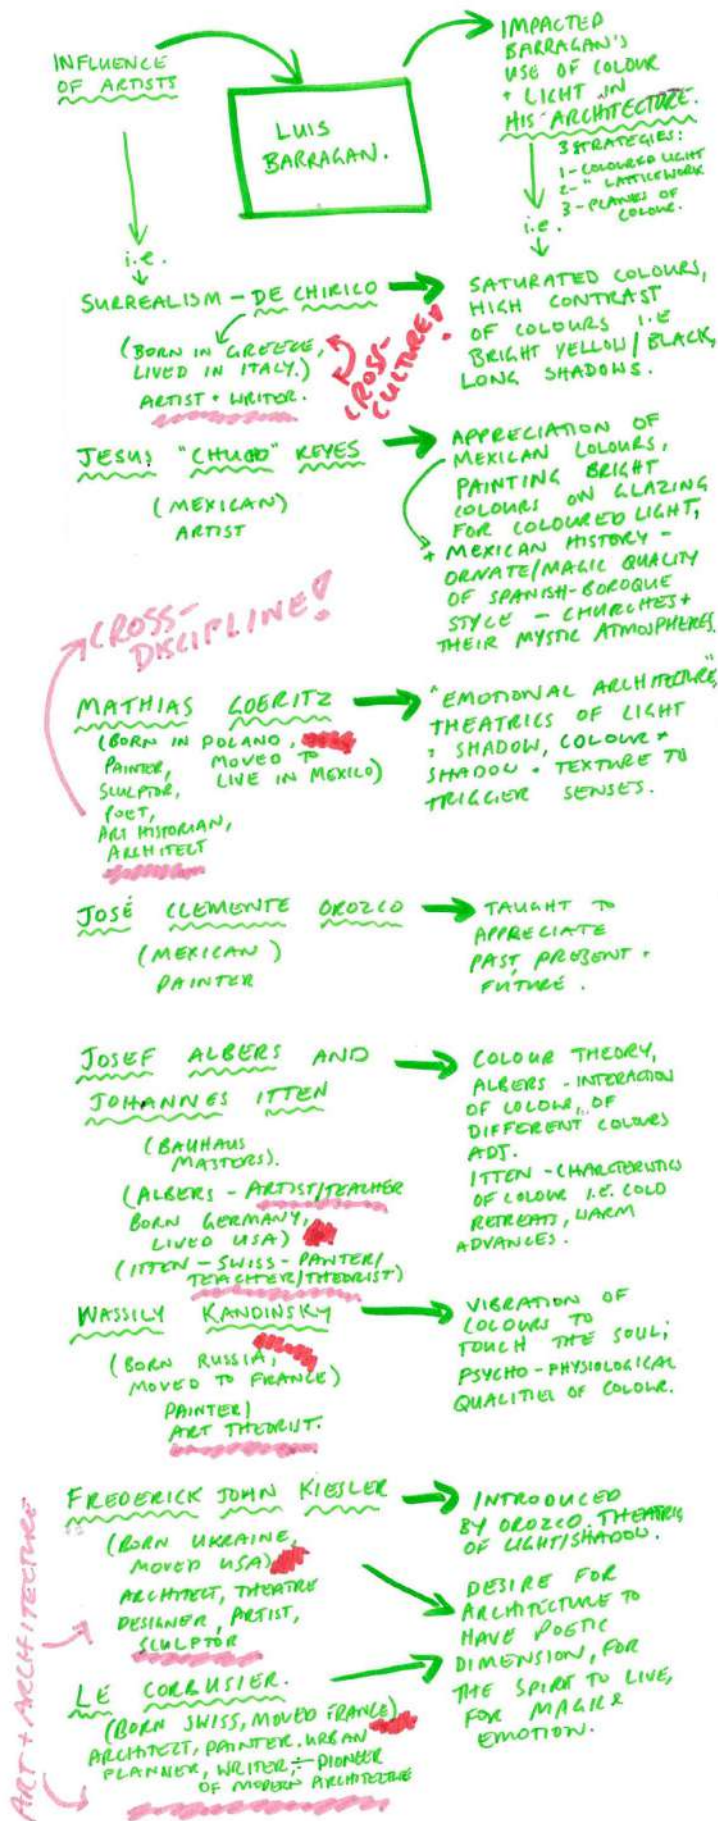 INFLUENCE
OF ARTISTS
LUIS
BARRAGAN.
IMPACTED
BARRAGAN'S
USE OF COLOUR
+ LIGHT IN
HIS ARCHITECTURE.
3 STRATEGIES:
1 - COLOURED LIGHT
2 - " LATTICEWORK
3 - PLANES OF
COLOUR.
i.e.
i.e.
SURREALISM - DE CHIRICO
(BORN IN GREECE,
LIVED IN ITALY.)
ARTIST + WRITER.
CROSS-
CULTURE!
SATURATED COLOURS,
HIGH CONTRAST
OF COLOURS I.E
BRIGHT YELLOW/BLACK,
LONG SHADOWS.
JESUS "CHUCHO" KEYES
(MEXICAN)
ARTIST
APPRECIATION OF
MEXICAN COLOURS,
PAINTING BRIGHT
COLOURS ON GLAZING
FOR COLOURED LIGHT,
+ MEXICAN HISTORY -
ORNATE/MAGIC QUALITY
OF SPANISH-BOROQUE
STYLE - CHURCHES +
THEIR MYSTIC ATMOSPHERES.
CROSS-
DISCIPLINE!
MATHIAS GOERITZ
(BORN IN POLAND,
PAINTER, MOVED TO
SCULPTOR, LIVE IN MEXICO)
POET,
ART HISTORIAN,
ARCHITECT
"EMOTIONAL ARCHITECTURE"
THEATRICS OF LIGHT
+ SHADOW, COLOUR +
SHADOW + TEXTURE TO
TRIGGER SENSES.
JOSÉ CLEMENTE OROZCO
(MEXICAN)
PAINTER
TAUGHT TO
APPRECIATE
PAST, PRESENT +
FUTURE.
JOSEF ALBERS AND
JOHANNES ITTEN
(BAUHAUS
MASTERS).
(ALBERS - ARTIST/TEACHER
BORN GERMANY,
LIVED USA)
(ITTEN - SWISS - PAINTER/
TEACHER/THEORIST)
COLOUR THEORY,
ALBERS - INTERACTION
OF COLOUR, OF
DIFFERENT COLOURS
ADJ.
ITTEN - CHARCTERISTICS
OF COLOUR I.E. COLD
RETREATS, WARM
ADVANCES.
WASSILY KANDINSKY
(BORN RUSSIA,
MOVED TO FRANCE)
PAINTER/
ART THEORIST.
VIBRATION OF
COLOURS TO
TOUCH THE SOUL;
PSYCHO-PHYSIOLOGICAL
QUALITIES OF COLOUR.
FREDERICK JOHN KIESLER
(BORN UKRAINE,
MOVED USA)
ARCHITECT, THEATRE
DESIGNER, ARTIST,
SCULPTOR
INTRODUCED
BY OROZCO. THEATRICS
OF LIGHT/SHADOW.
DESIRE FOR
ARCHITECTURE TO
HAVE POETIC
DIMENSION, FOR
THE SPIRIT TO LIVE,
FOR MAGIC &
EMOTION.
ART + ARCHITECTURE
LE CORBUSIER.
(BORN SWISS, MOVED FRANCE)
ARCHITECT, PAINTER, URBAN
PLANNER, WRITER, - PIONEER
OF MODERN ARCHITECTURE